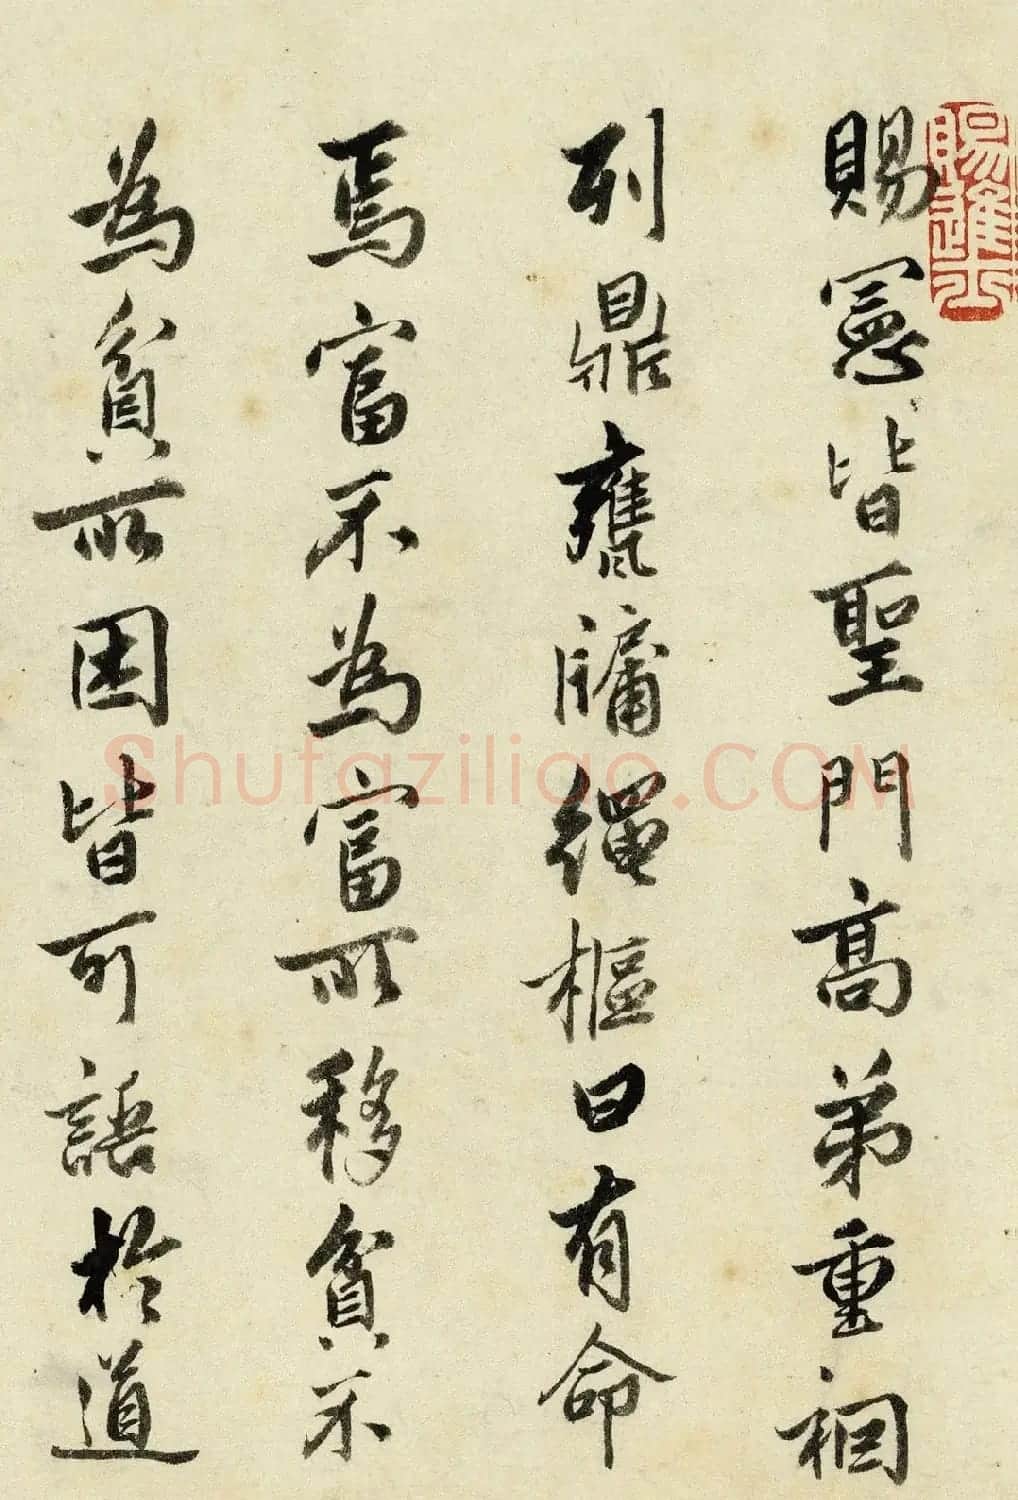 賜憲皆聖門高弟重裀
列鼎甕牖繩樞曰有命
焉富不為富所移貧不
為貧所困皆可語於道
Shufaziliao.COM